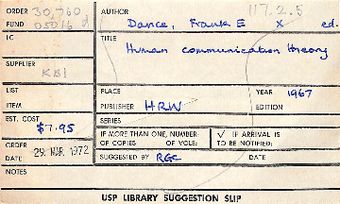 ORDER 30,760
FUND 05016 d
AUTHOR 117.2.5
Dance, Frank E X ed.
IC
TITLE
Human communication theory
SUPPLIER
KBI
LIST
ITEM
PLACE YEAR 1967
PUBLISHER HRW EDITION
SERIES
EST. COST
$7.95
IF MORE THAN ONE, NUMBER
OF COPIES OF VOLS.
✓ IF ARRIVAL IS
TO BE NOTIFIED:
ORDER
DATE: 29 MAR 1972
SUGGESTED BY RGC DATE
NOTES
USP LIBRARY SUGGESTION SLIP